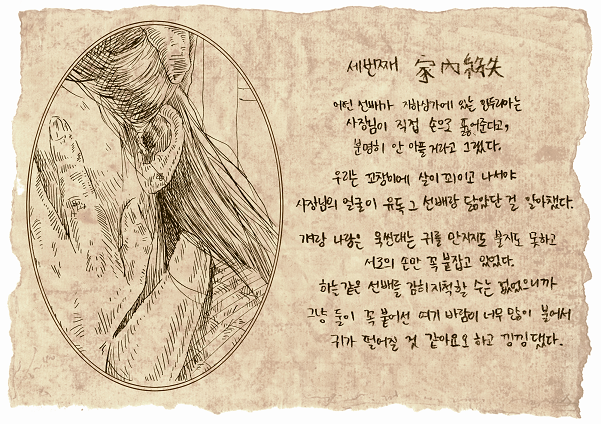 세번째 家內
어떤 선배가 지하상가에 있는 모두라는
사장님이 직접 손으로 뚫어준다고,
분명히 안 아플 거라고 그랬다.
우리는 꼬챙이에 살이 꾀이고 나서야
사장님의 얼굴이 유독 그 선배랑 닮았단 걸 알아챘다.
걔랑 나랑은 욱씬대는 귀를 만지지도 불지도 못하고
서로의 손만 꼭 붙잡고 있었다.
하늘같은 선배를 감히 지적할 수는 없었으니까
그냥 둘이 꼭 붙어선 여기 바람이 너무 많이 불어서
귀가 떨어질 것 같아요오 하고 낑낑댔다.